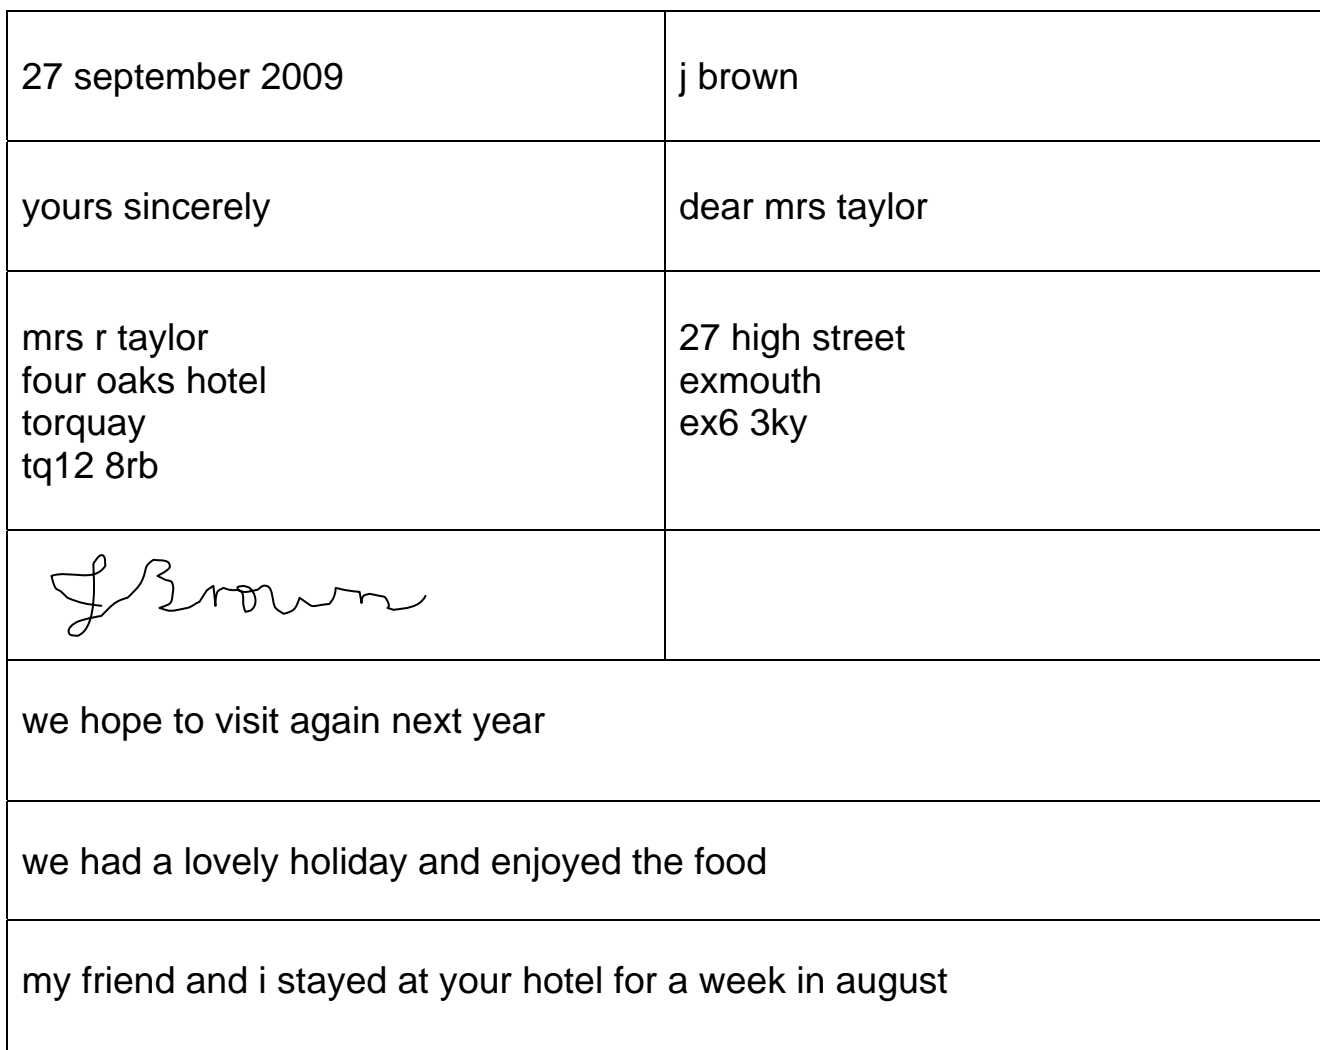 27 september 2009
j brown
yours sincerely
dear mrs taylor
mrs r taylor
four oaks hotel
torquay
tq12 8rb
27 high street
exmouth
ex6 3ky
J Brown
we hope to visit again next year
we had a lovely holiday and enjoyed the food
my friend and i stayed at your hotel for a week in august